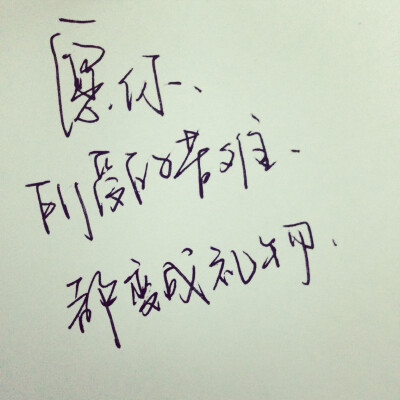 愿你、
所受的苦难、
都变成礼物.